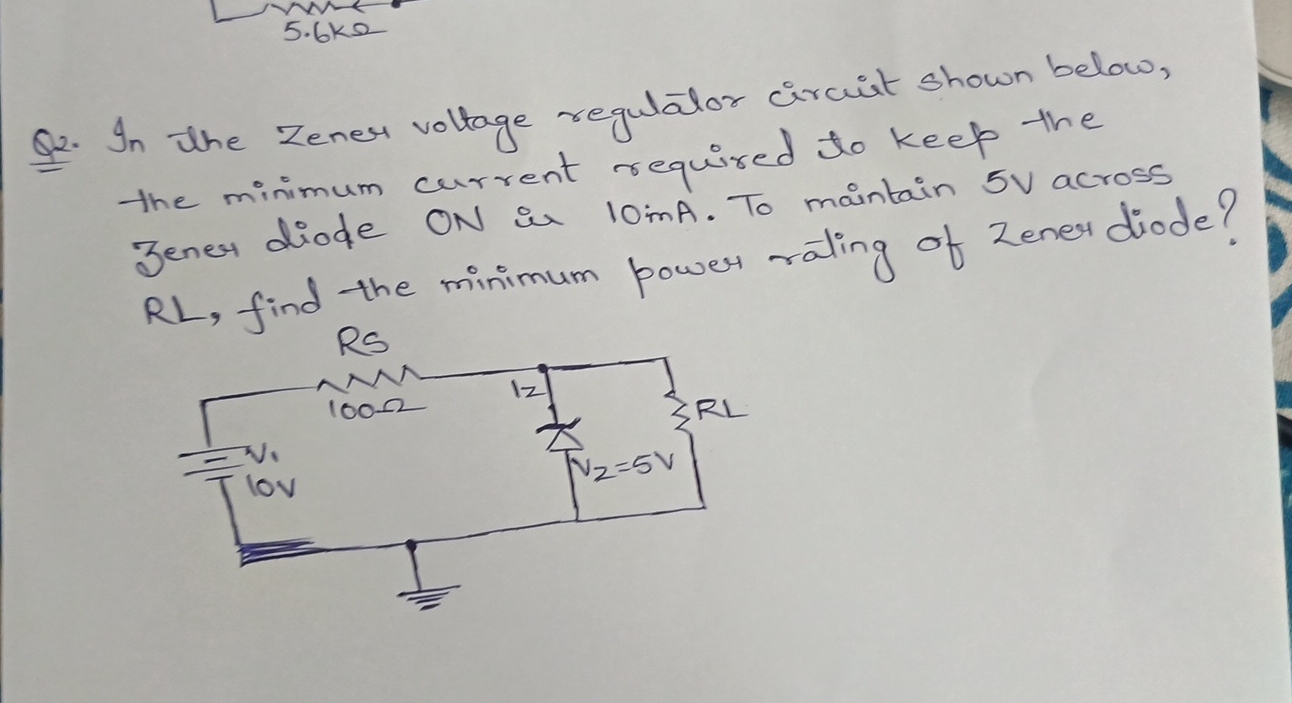 5.6kΩ
Q2. In the Zener voltage regulator circuit shown below,
the minimum current required to keep the
Zener diode ON is 10mA. To maintain 5V across
RL, find the minimum power rating of Zener diode?
RS
100Ω
Iz
RL
V1
10V
VZ=5V